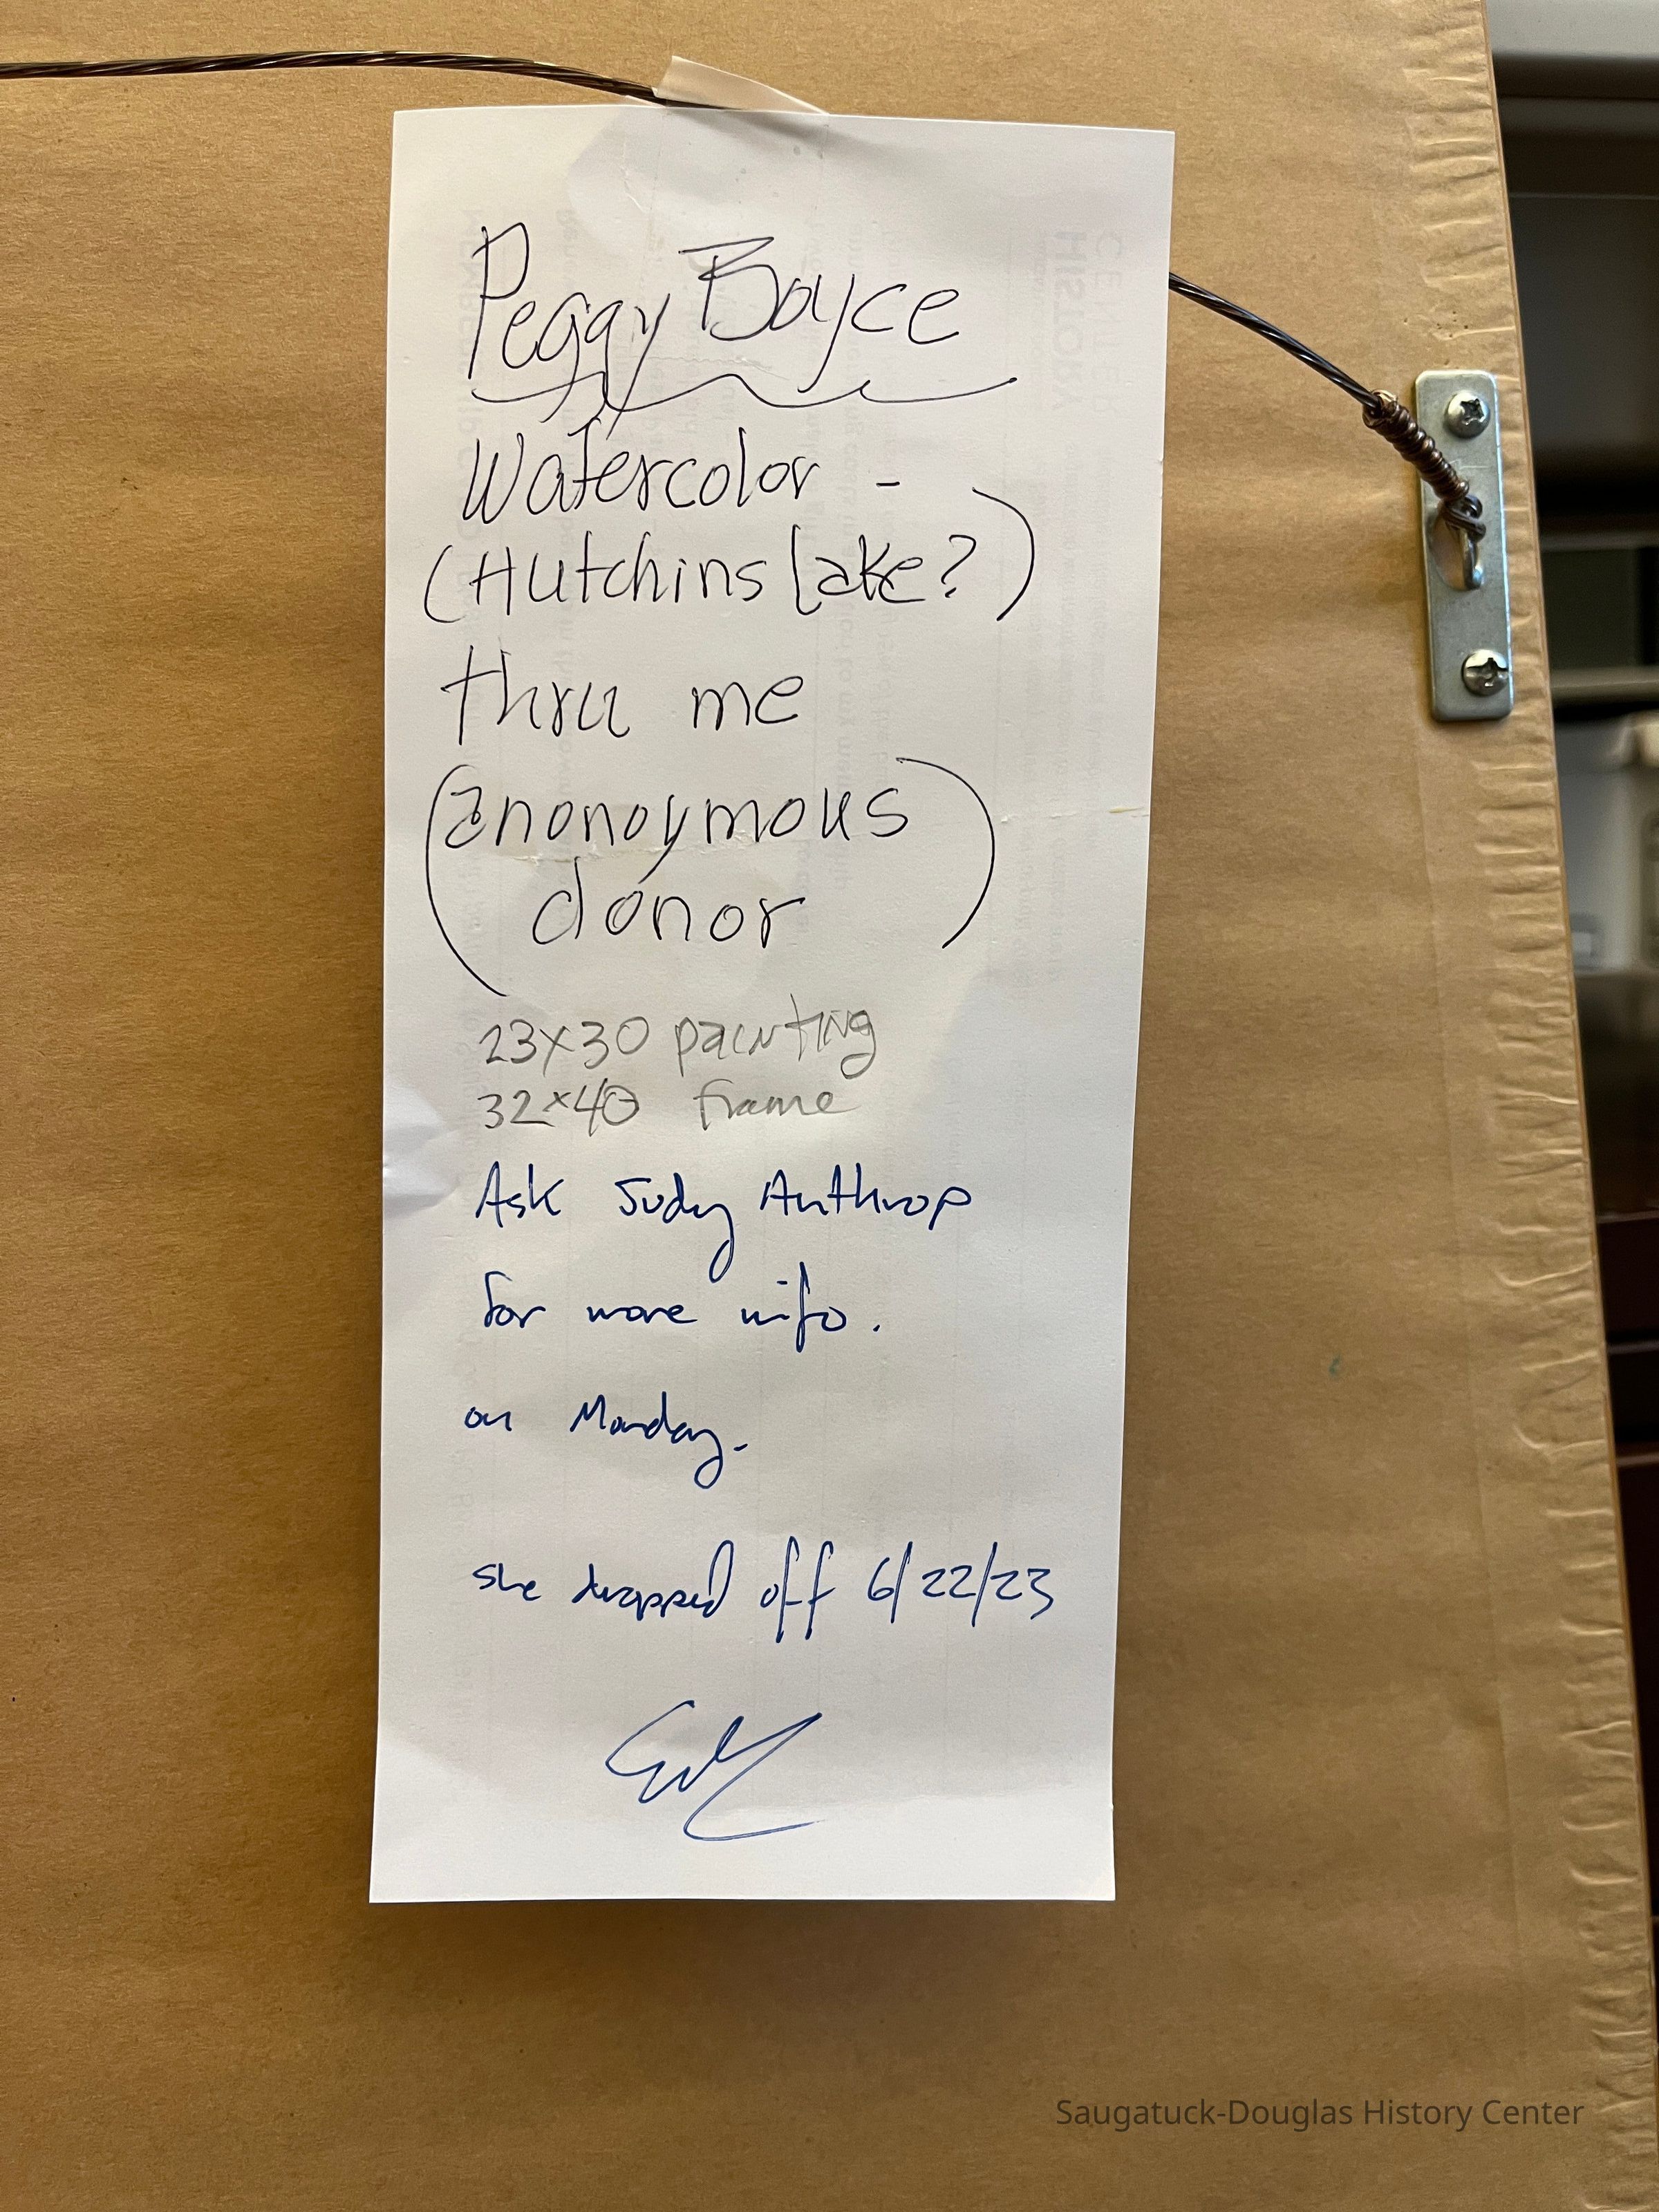 Peggy Boyce
Watercolor -
(Hutchins Lake?)
thru me
(anonoymous
donor)
23x30 painting
32x40 frame
Ask Judy Anthrop
for more info.
on Monday.
she dropped off 6/22/23
Saugatuck-Douglas History Center